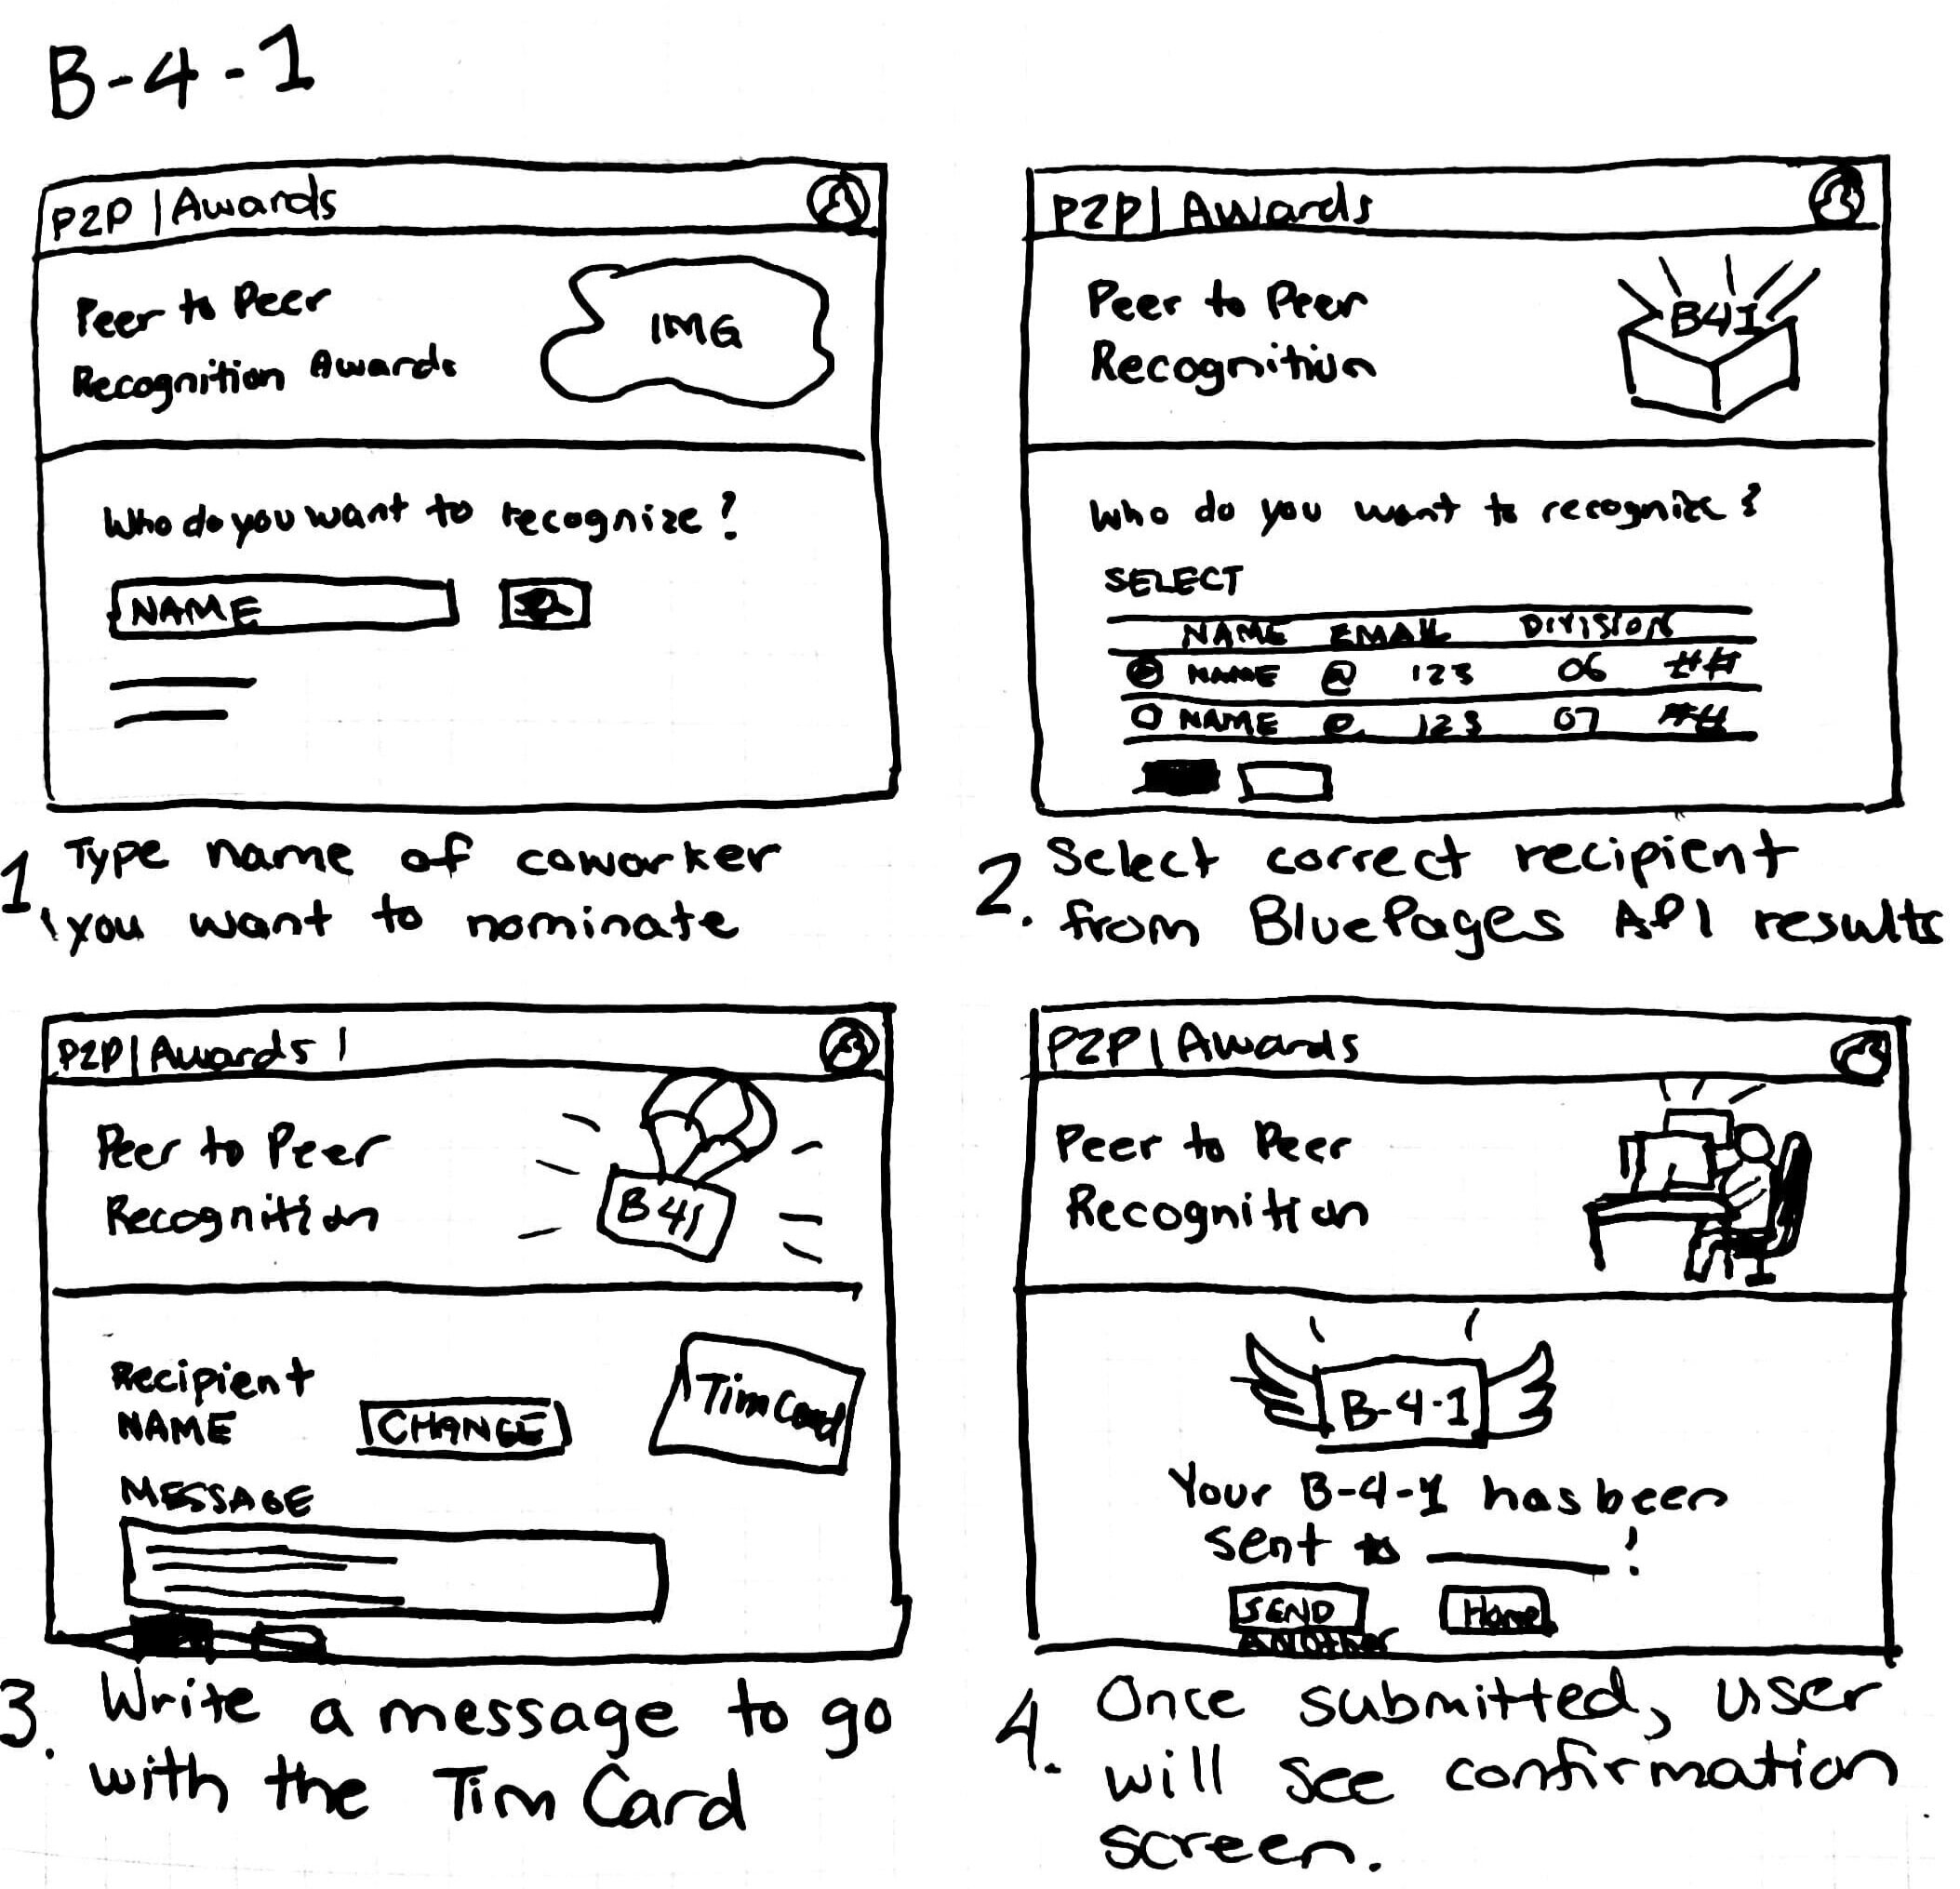 B-4-1
P2P | Awards
Peer to Peer
Recognition Awards
IMG
Who do you want to recognize?
NAME
1. Type name of coworker
you want to nominate
P2P | Awards
Peer to Peer
Recognition
B41
Who do you want to recognize?
SELECT
NAME EMAIL DIVISION
NAME @ 123 06 ##
NAME @ 123 07 ##
2. Select correct recipient
from BluePages API results
P2P | Awards |
Peer to Peer
Recognition
B41
Recipient
NAME
CHANGE
Tim Card
MESSAGE
3. Write a message to go
with the Tim Card
P2P | Awards
Peer to Peer
Recognition
B-4-1
Your B-4-1 has been
sent to ______!
SEND
ANOTHER
Home
4. Once submitted, user
will see confirmation
screen.